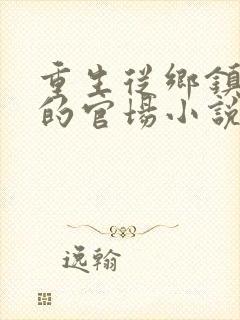 重生從鄉鎮
的官場小說
逸翰